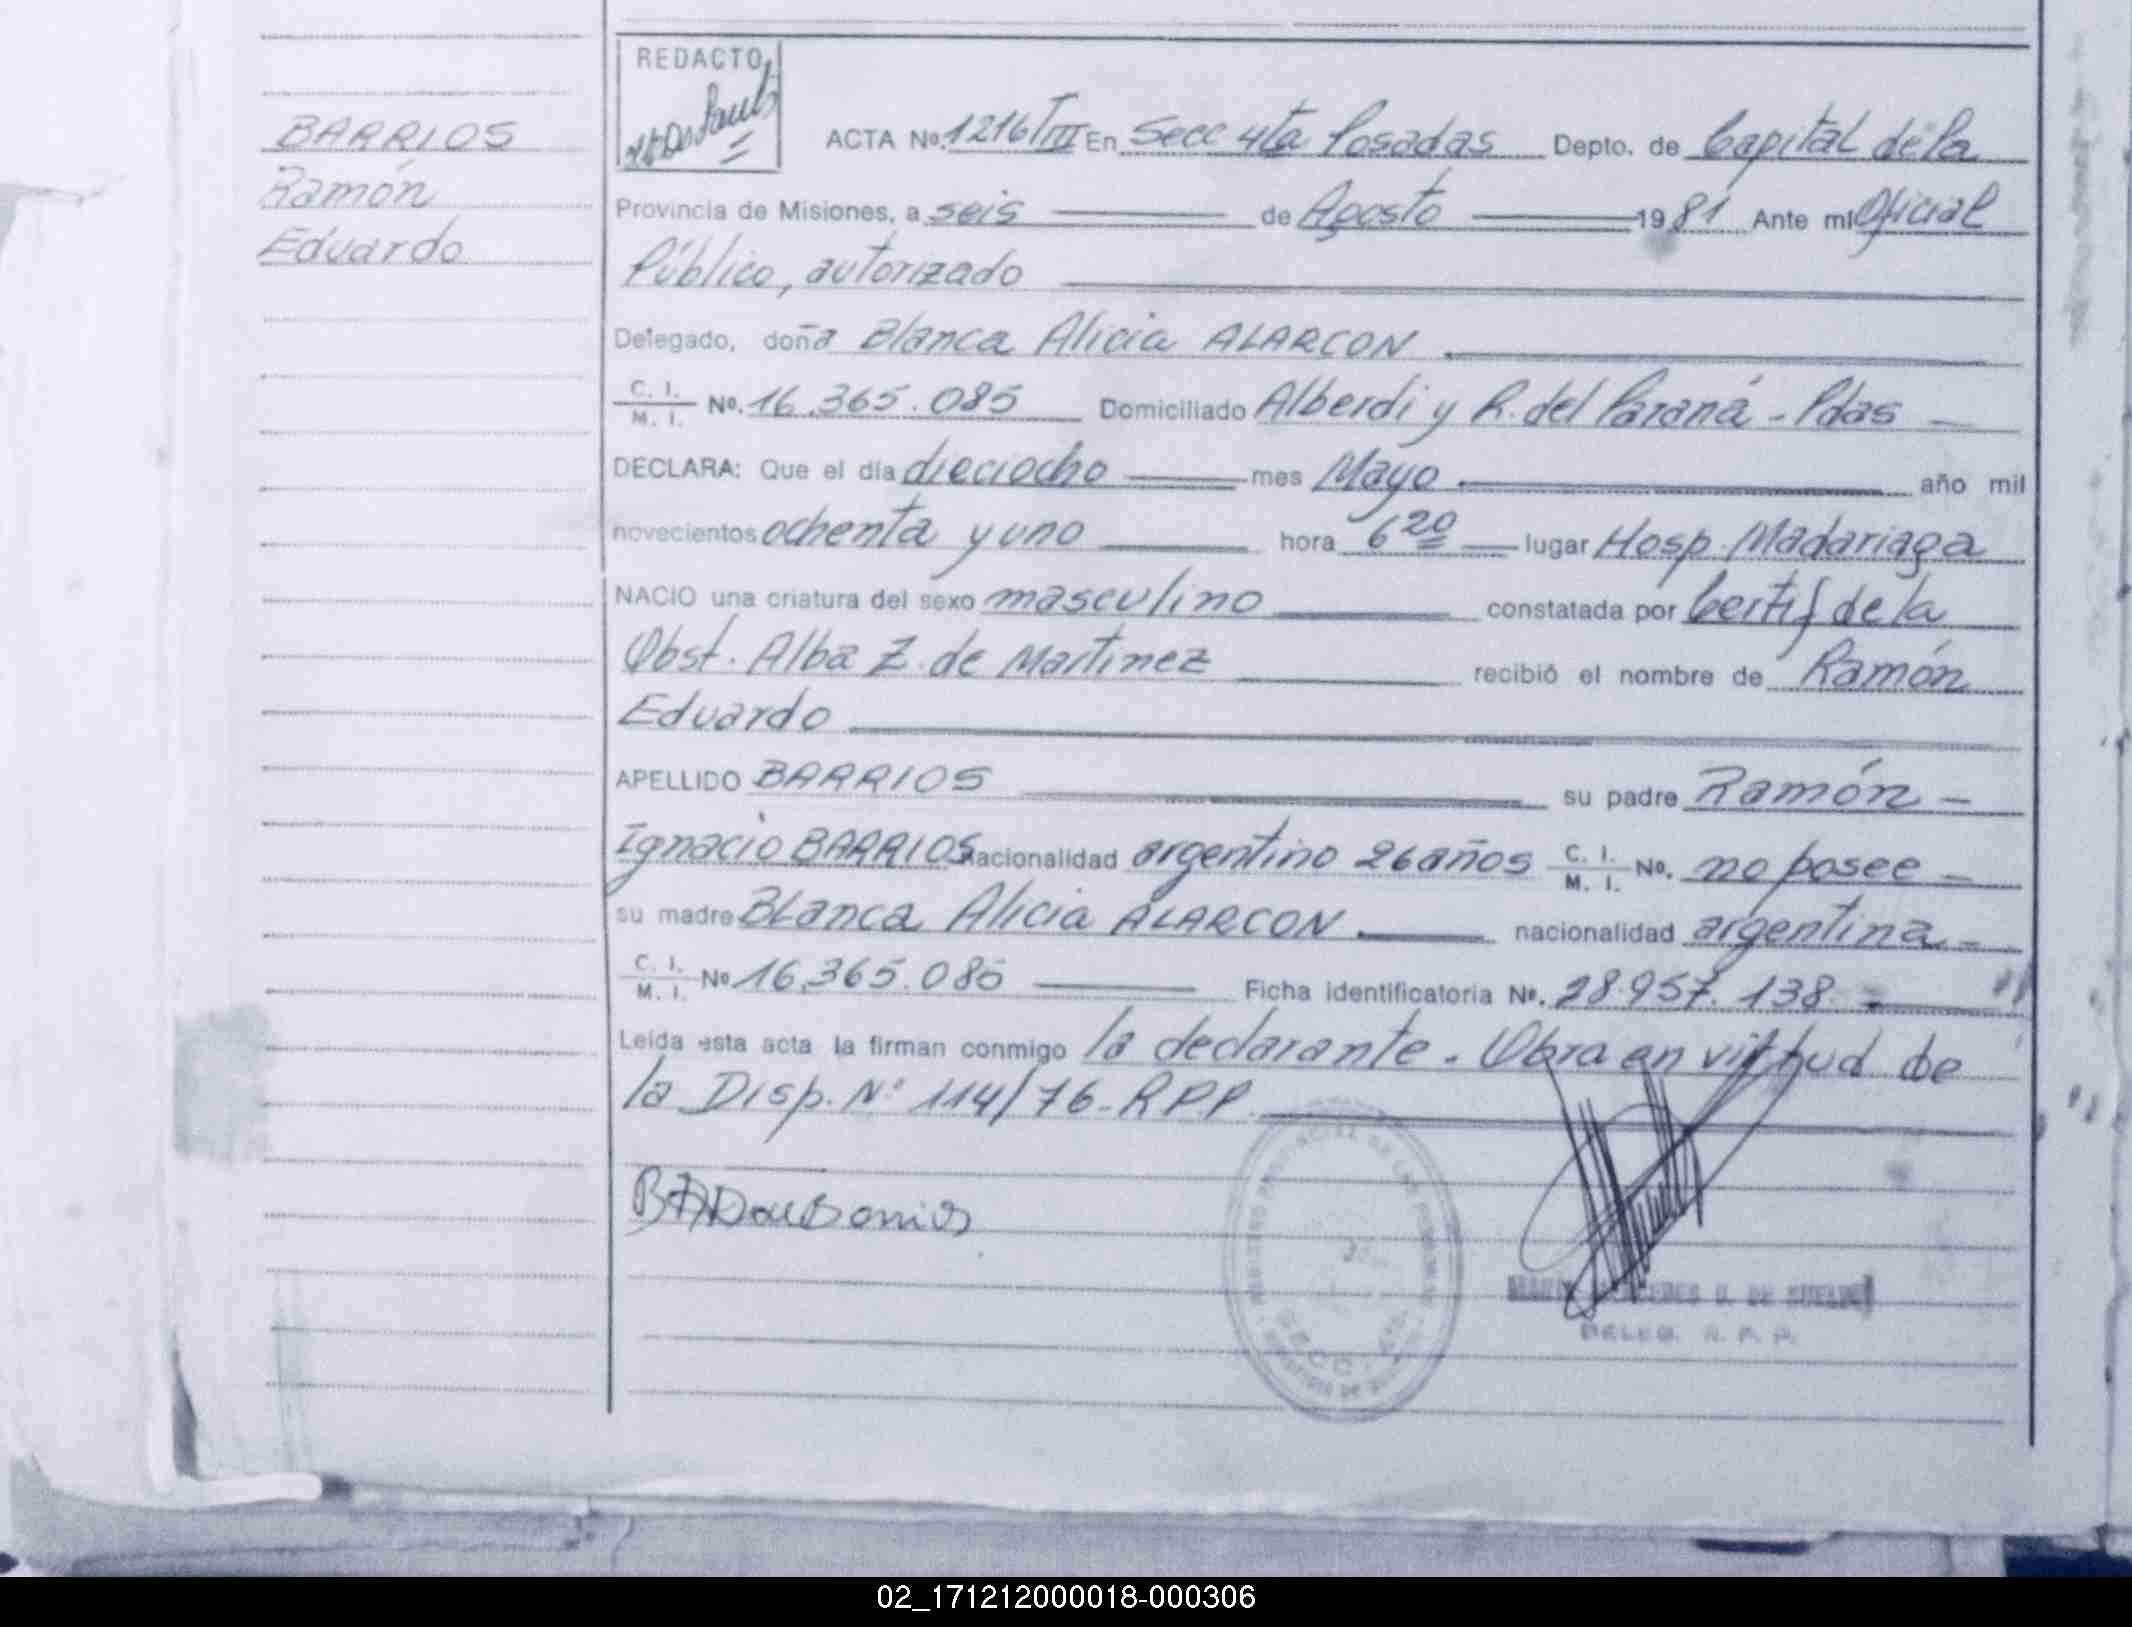 REDACTO
BARRIOS
Ramón
Eduardo
ACTA Nº. 1216/III En Secc 4ta Posadas Depto. de Capital de la
Provincia de Misiones, a seis de Agosto 1981 Ante mi Oficial
Público, autorizado
Delegado, doña Blanca Alicia ALARCON
C. I. M. I. Nº. 16.365.085 Domiciliado Alberdi y R. del Paraná - Pdas
DECLARA: Que el día dieciocho mes Mayo año mil
novecientos ochenta y uno hora 6 20 lugar Hosp. Madariaga
NACIO una criatura del sexo masculino constatada por Certif de la
Obst. Alba Z. de Martinez recibió el nombre de Ramón
Eduardo
APELLIDO BARRIOS su padre Ramón
Ignacio BARRIOS nacionalidad argentino 26 años C. I. M. I. Nº. no posee
su madre Blanca Alicia ALARCON nacionalidad argentina
C. I. M. I. Nº 16.365.085 Ficha identificatoria Nº. 28.957.138
Leída esta acta la firman conmigo la declarante. Obra en virtud de
la Disp. Nº 114/76-RPP.
DELEG. R. P. P.
02_171212000018-000306